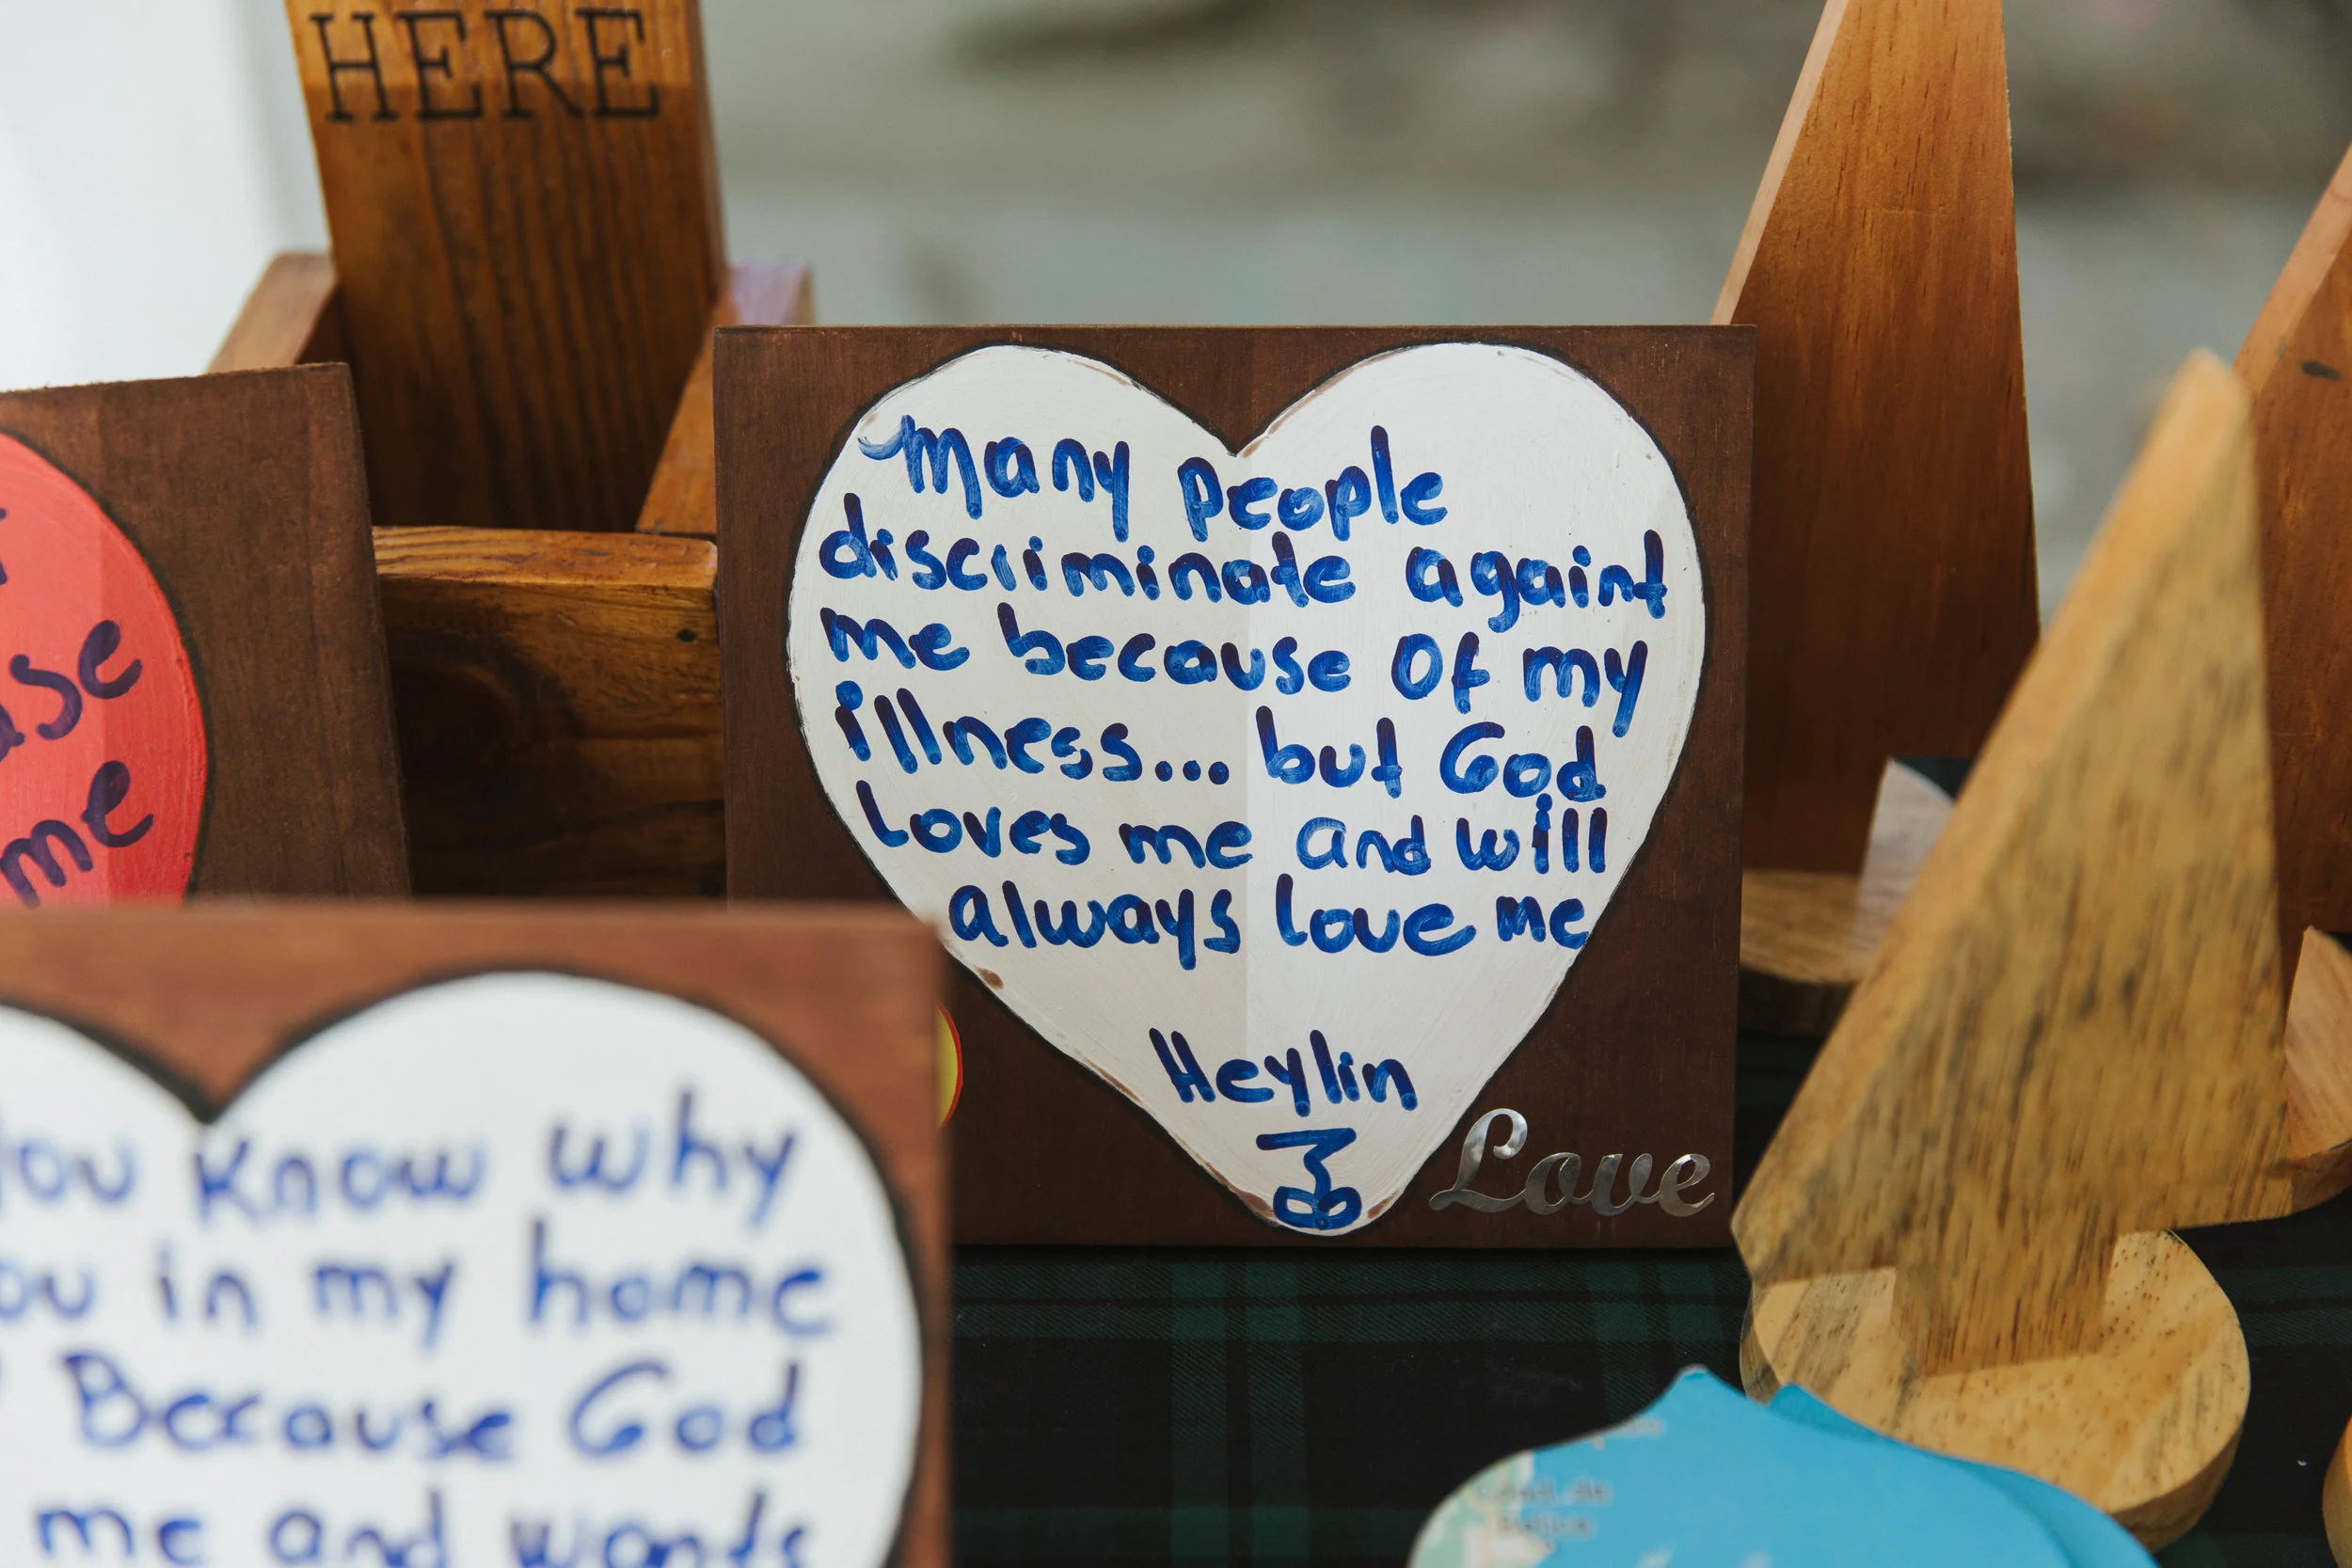 HERE
Many people
discriminate againt
me because of my
illness... but God
loves me and will
always love me
Heylin
Love
use
me
you know why
in my home
Because God
me and wants